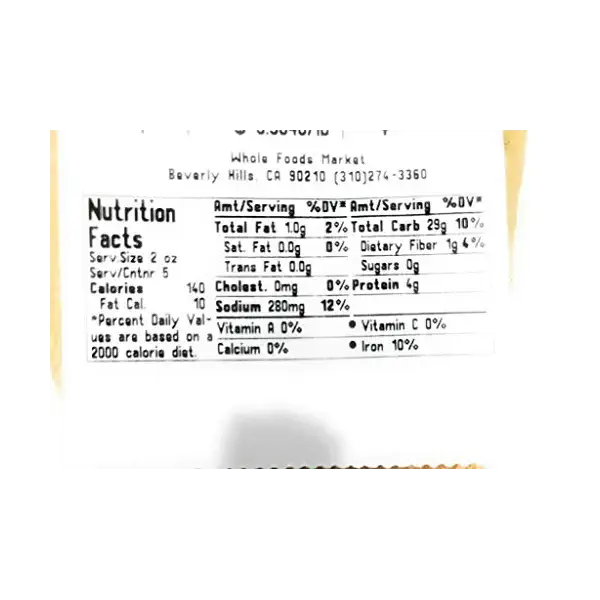 Whole Foods Market
Beverly Hills. CA 90210 (310)274-3360
Nutrition
Facts
Serv.Size 2 oz
Serv/Cntnr 5
Calories 140
Fat Cal. 10
*Percent Daily Val-
ues are based on a
2000 calorie diet.
Amt/Serving %DV* Amt/Serving %DV*
Total Fat 1.0g 2% Total Carb 29g 10%
Sat. Fat 0.0g 0% Dietary Fiber 1g 4%
Trans Fat 0.0g Sugars 0g
Cholest. 0mg 0% Protein 4g
Sodium 280mg 12%
Vitamin A 0% • Vitamin C 0%
Calcium 0% • Iron 10%